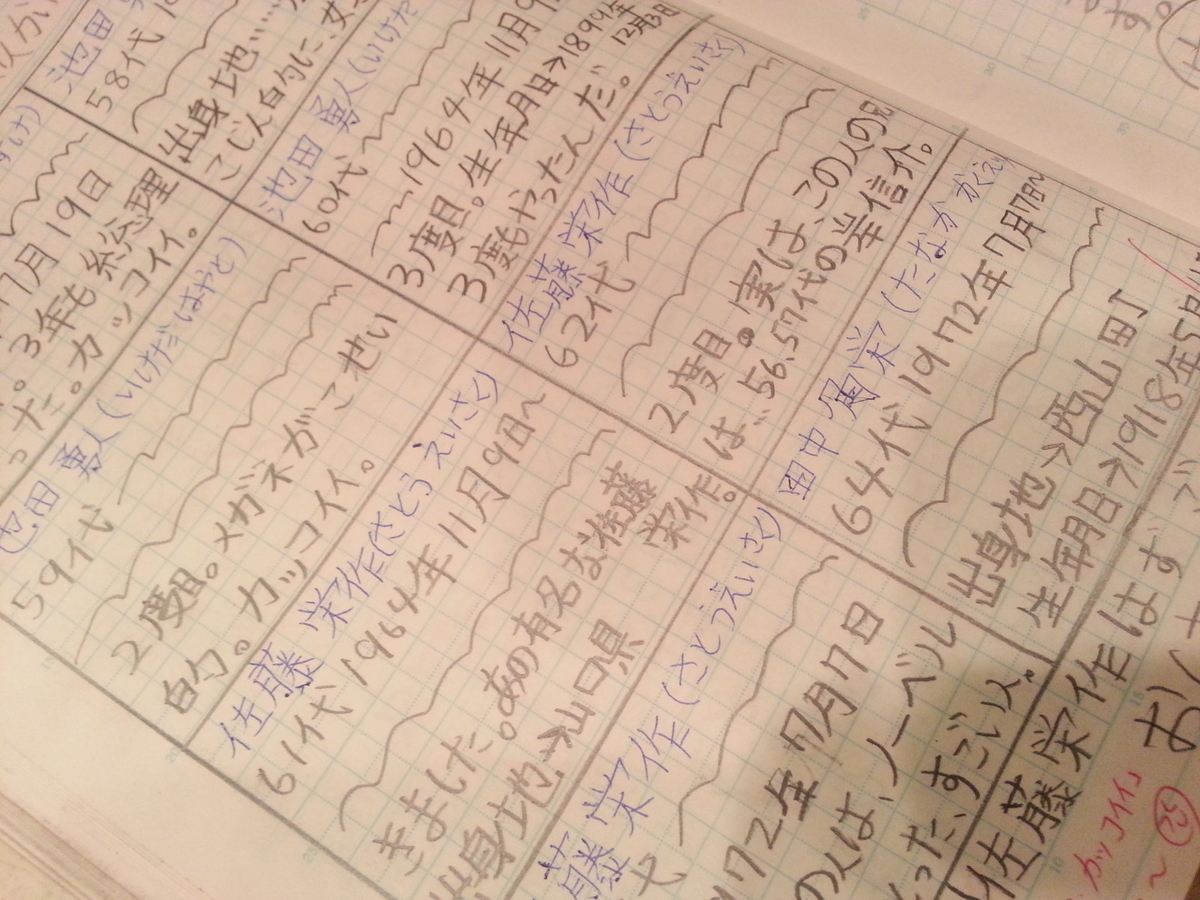 池田
58代
出身地…
こじん白勺に、
池田 勇人(いけだ
60代
～1964年11月9
3度目。生年月日→1899年
12月3日
3度もやったんだ。
佐藤 栄作(さとうえいさく)
62代
2度目。実は、この人の兄
は…56.57代の岸信介。
田中 角栄(たなか かくえい
64代 1972年7月7日～
出身地→西山町
生年月日→1918年5月
7月19日
。3年も総理
った。カッコイイ。
池田 勇人(いけだはやと)
59代
2度目。メガネがこせい
白勺。カッコイイ。
佐藤 栄作(さとう えいさく)
61代 1964年11月9日～
きました。あの有名な佐藤
栄作。
出身地→山口県
藤 栄作(さとうえいさく)
代
1972年7月7日
の人は、ノーベル
とった、すごい人。
佐藤 栄作はず
カッコイイ